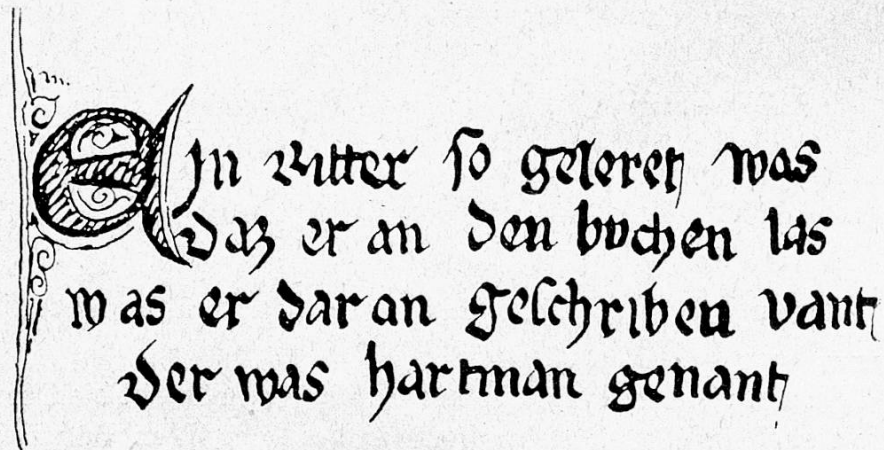 EIn Ritter so geleret was
Daz er an den buchen las
was er dar an geschriben vant
Der was hartman genant